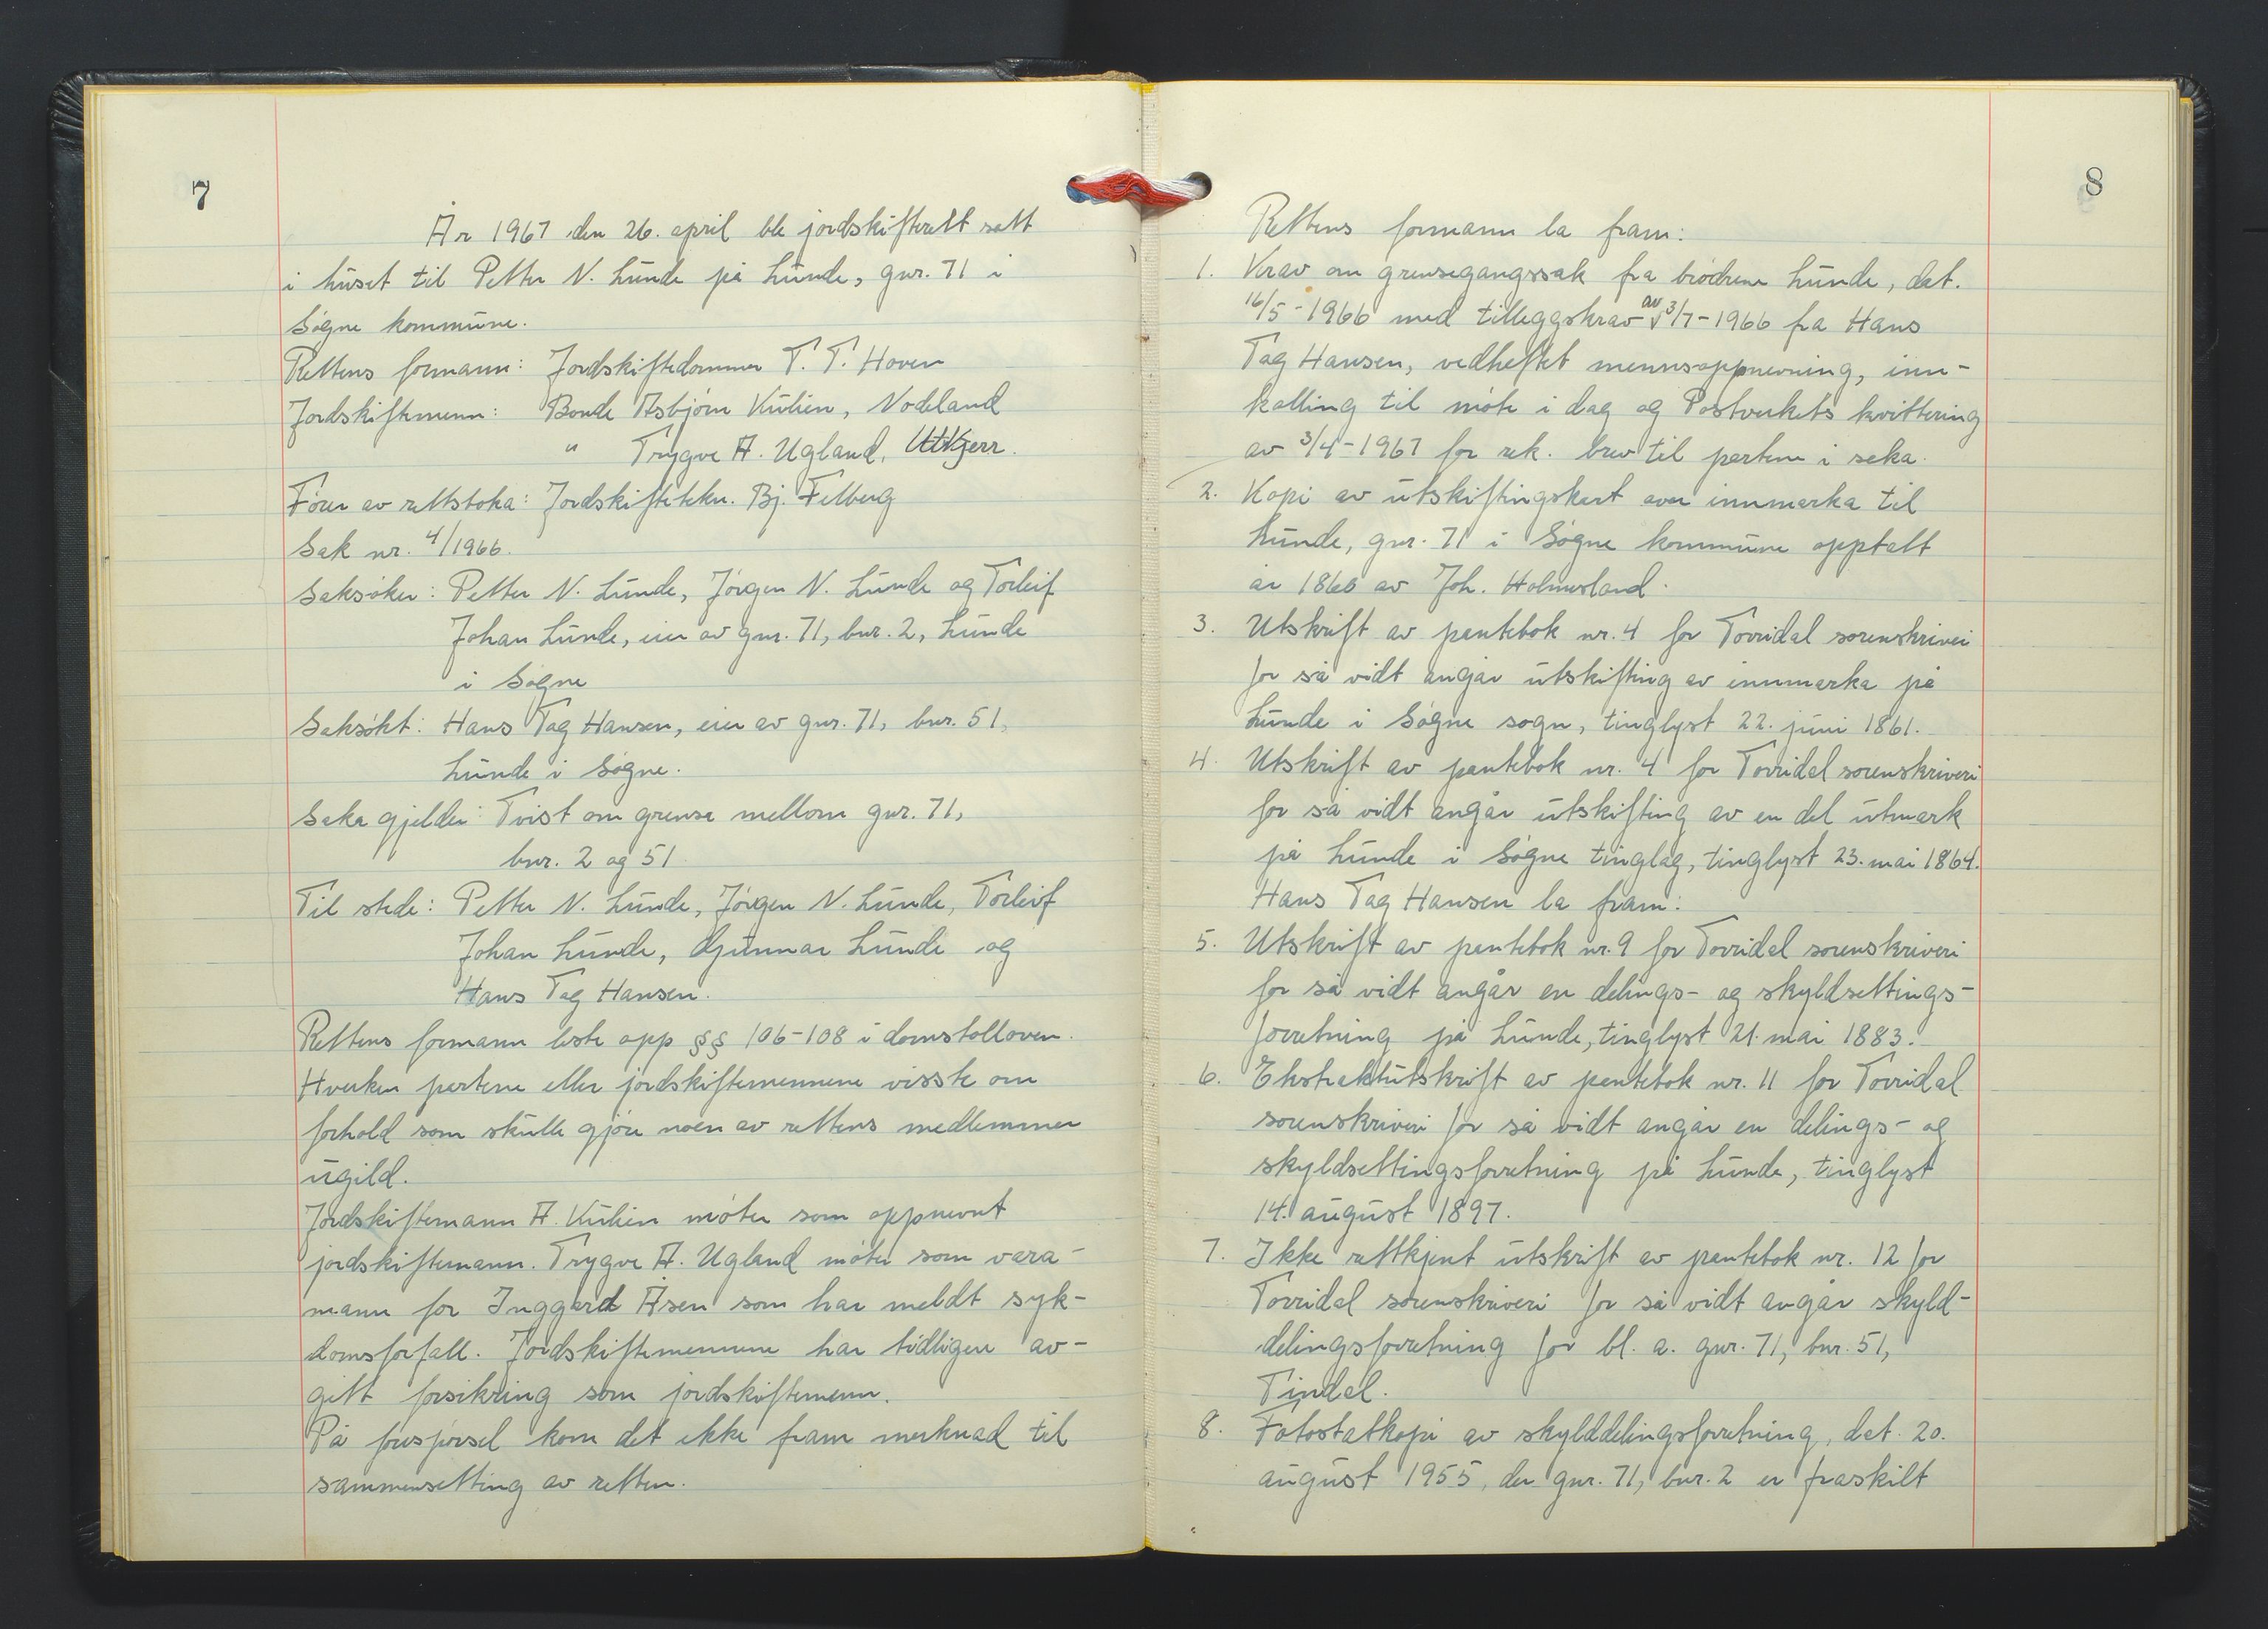 7
År 1967 den 26. april ble jordskifterett satt
i huset til Petter N. Lunde på Lunde, gnr. 71 i
Søgne kommune.
Rettens formann: Jordskiftedommer T. T. Hoven
Jordskiftemenn: Bonde Asbjørn Kulien, Nodeland
" Trygve A. Ugland, Utkjerr.
Fører av rettsboka: Jordskiftetekn. Bj. Felberg
Sak nr. 4/1966.
Saksøker: Petter N. Lunde, Jørgen N. Lunde og Torleif
Johan Lunde, eier av gnr. 71, bnr. 2, Lunde
i Søgne
Saksøkt: Hans Tag Hansen, eier av gnr. 71, bnr. 51,
Lunde i Søgne.
Saka gjelder: Tvist om grensa mellom gnr. 71,
bnr. 2 og 51
Til stede: Petter N. Lunde, Jørgen N. Lunde, Torleif
Johan Lunde, Gunnar Lunde og
Hans Tag Hansen.
Rettens formann leste opp §§ 106-108 i domstolloven.
Hverken partene eller jordskiftemennene visste om
forhold som skulle gjøre noen av rettens medlemmer
ugild.
Jordskiftemann A. Kulien møter som oppnevnt
jordskiftemann. Trygve A. Ugland møter som vara-
mann for Inggard Åsen som har meldt syk-
domsforfall. Jordskiftemennene har tidligere av-
gitt forsikring som jordskiftemenn.
På forespørsel kom det ikke fram merknad til
sammensetting av retten.
8
Rettens formann la fram:
1. Krav om grensegangssak fra brødrene Lunde, dat.
16/5-1966 med tilleggskrav av 3/7-1966 fra Hans
Tag Hansen, vedheftet mennsoppnevning, inn-
kalling til møte i dag og Postverkets kvittering
av 3/4-1967 for rek. brev til partene i saka.
2. Kopi av utskiftingskart over innmarka til
Lunde, gnr. 71 i Søgne kommune opptatt
år 1860 av Joh. Holmesland.
3. Utskrift av pantebok nr. 4 for Torridal sorenskriveri
for så vidt angår utskifting av innmarka på
Lunde i Søgne sogn, tinglyst 22. juni 1861.
4. Utskrift av pantebok nr. 4 for Torridal sorenskriveri
for så vidt angår utskifting av en del utmark
på Lunde i Søgne tinglag, tinglyst 23. mai 1864.
Hans Tag Hansen la fram:
5. Utskrift av pantebok nr. 9 for Torridal sorenskriveri
for så vidt angår en delings- og skyldsettings-
forretning på Lunde, tinglyst 21. mai 1883.
6. Ekstraktutskrift av pantebok nr. 11 for Torridal
sorenskriveri for så vidt angår en delings- og
skyldsettingsforretning på Lunde, tinglyst
14. august 1897.
7. Ikke rettkjent utskrift av pantebok nr. 12 for
Torridal sorenskriveri for så vidt angår skyld-
delingsforretning for bl. a. gnr. 71, bnr. 51,
Tindal.
8. Fotostatkopi av skylddelingsforretning, dat. 20.
august 1955, der gnr. 71, bnr. 2 er fraskilt